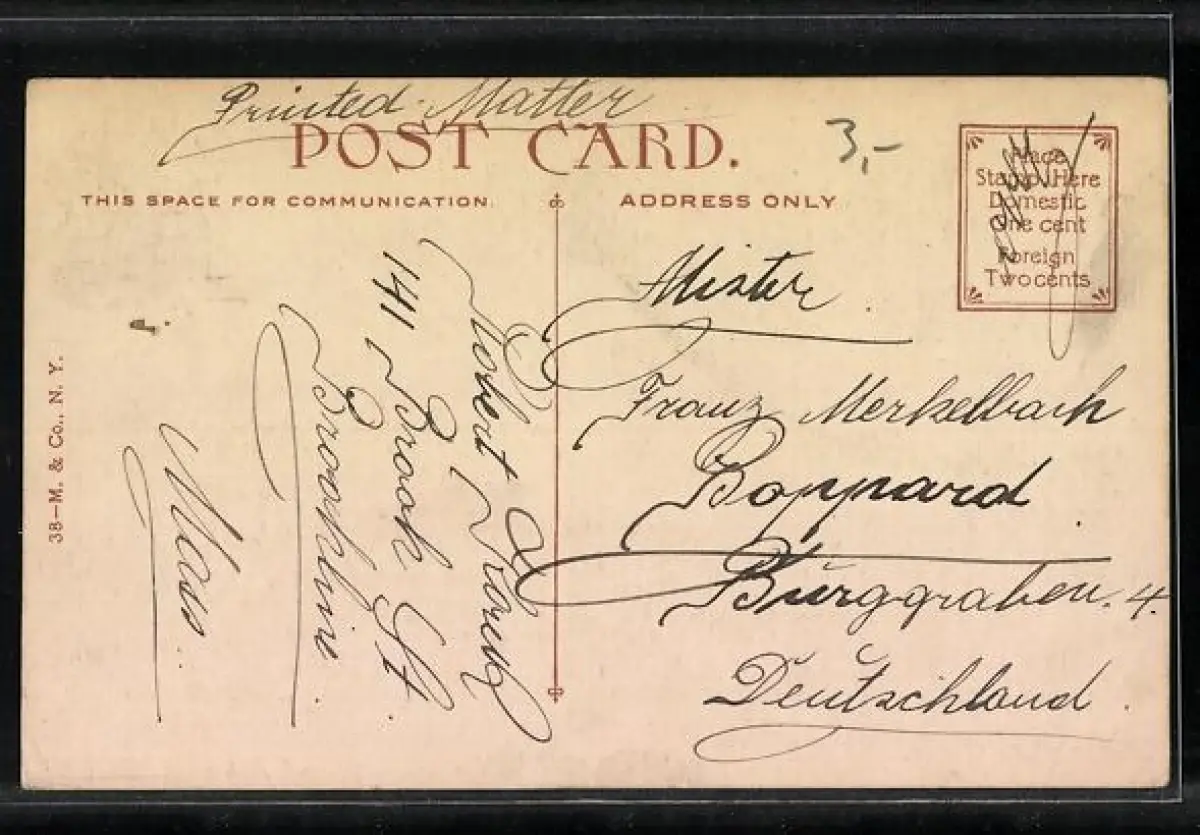 Printed Matter
POST CARD.
3,-
THIS SPACE FOR COMMUNICATION.
ADDRESS ONLY
Place
Stamp Here
Domestic
One cent
Foreign
Two cents
Mister
Franz Merkelbach
Boppard
Burggraben. 4.
Deutschland.
Robert
141 Brook St.
Brookline.
Mass.
38-M. & Co., N. Y.